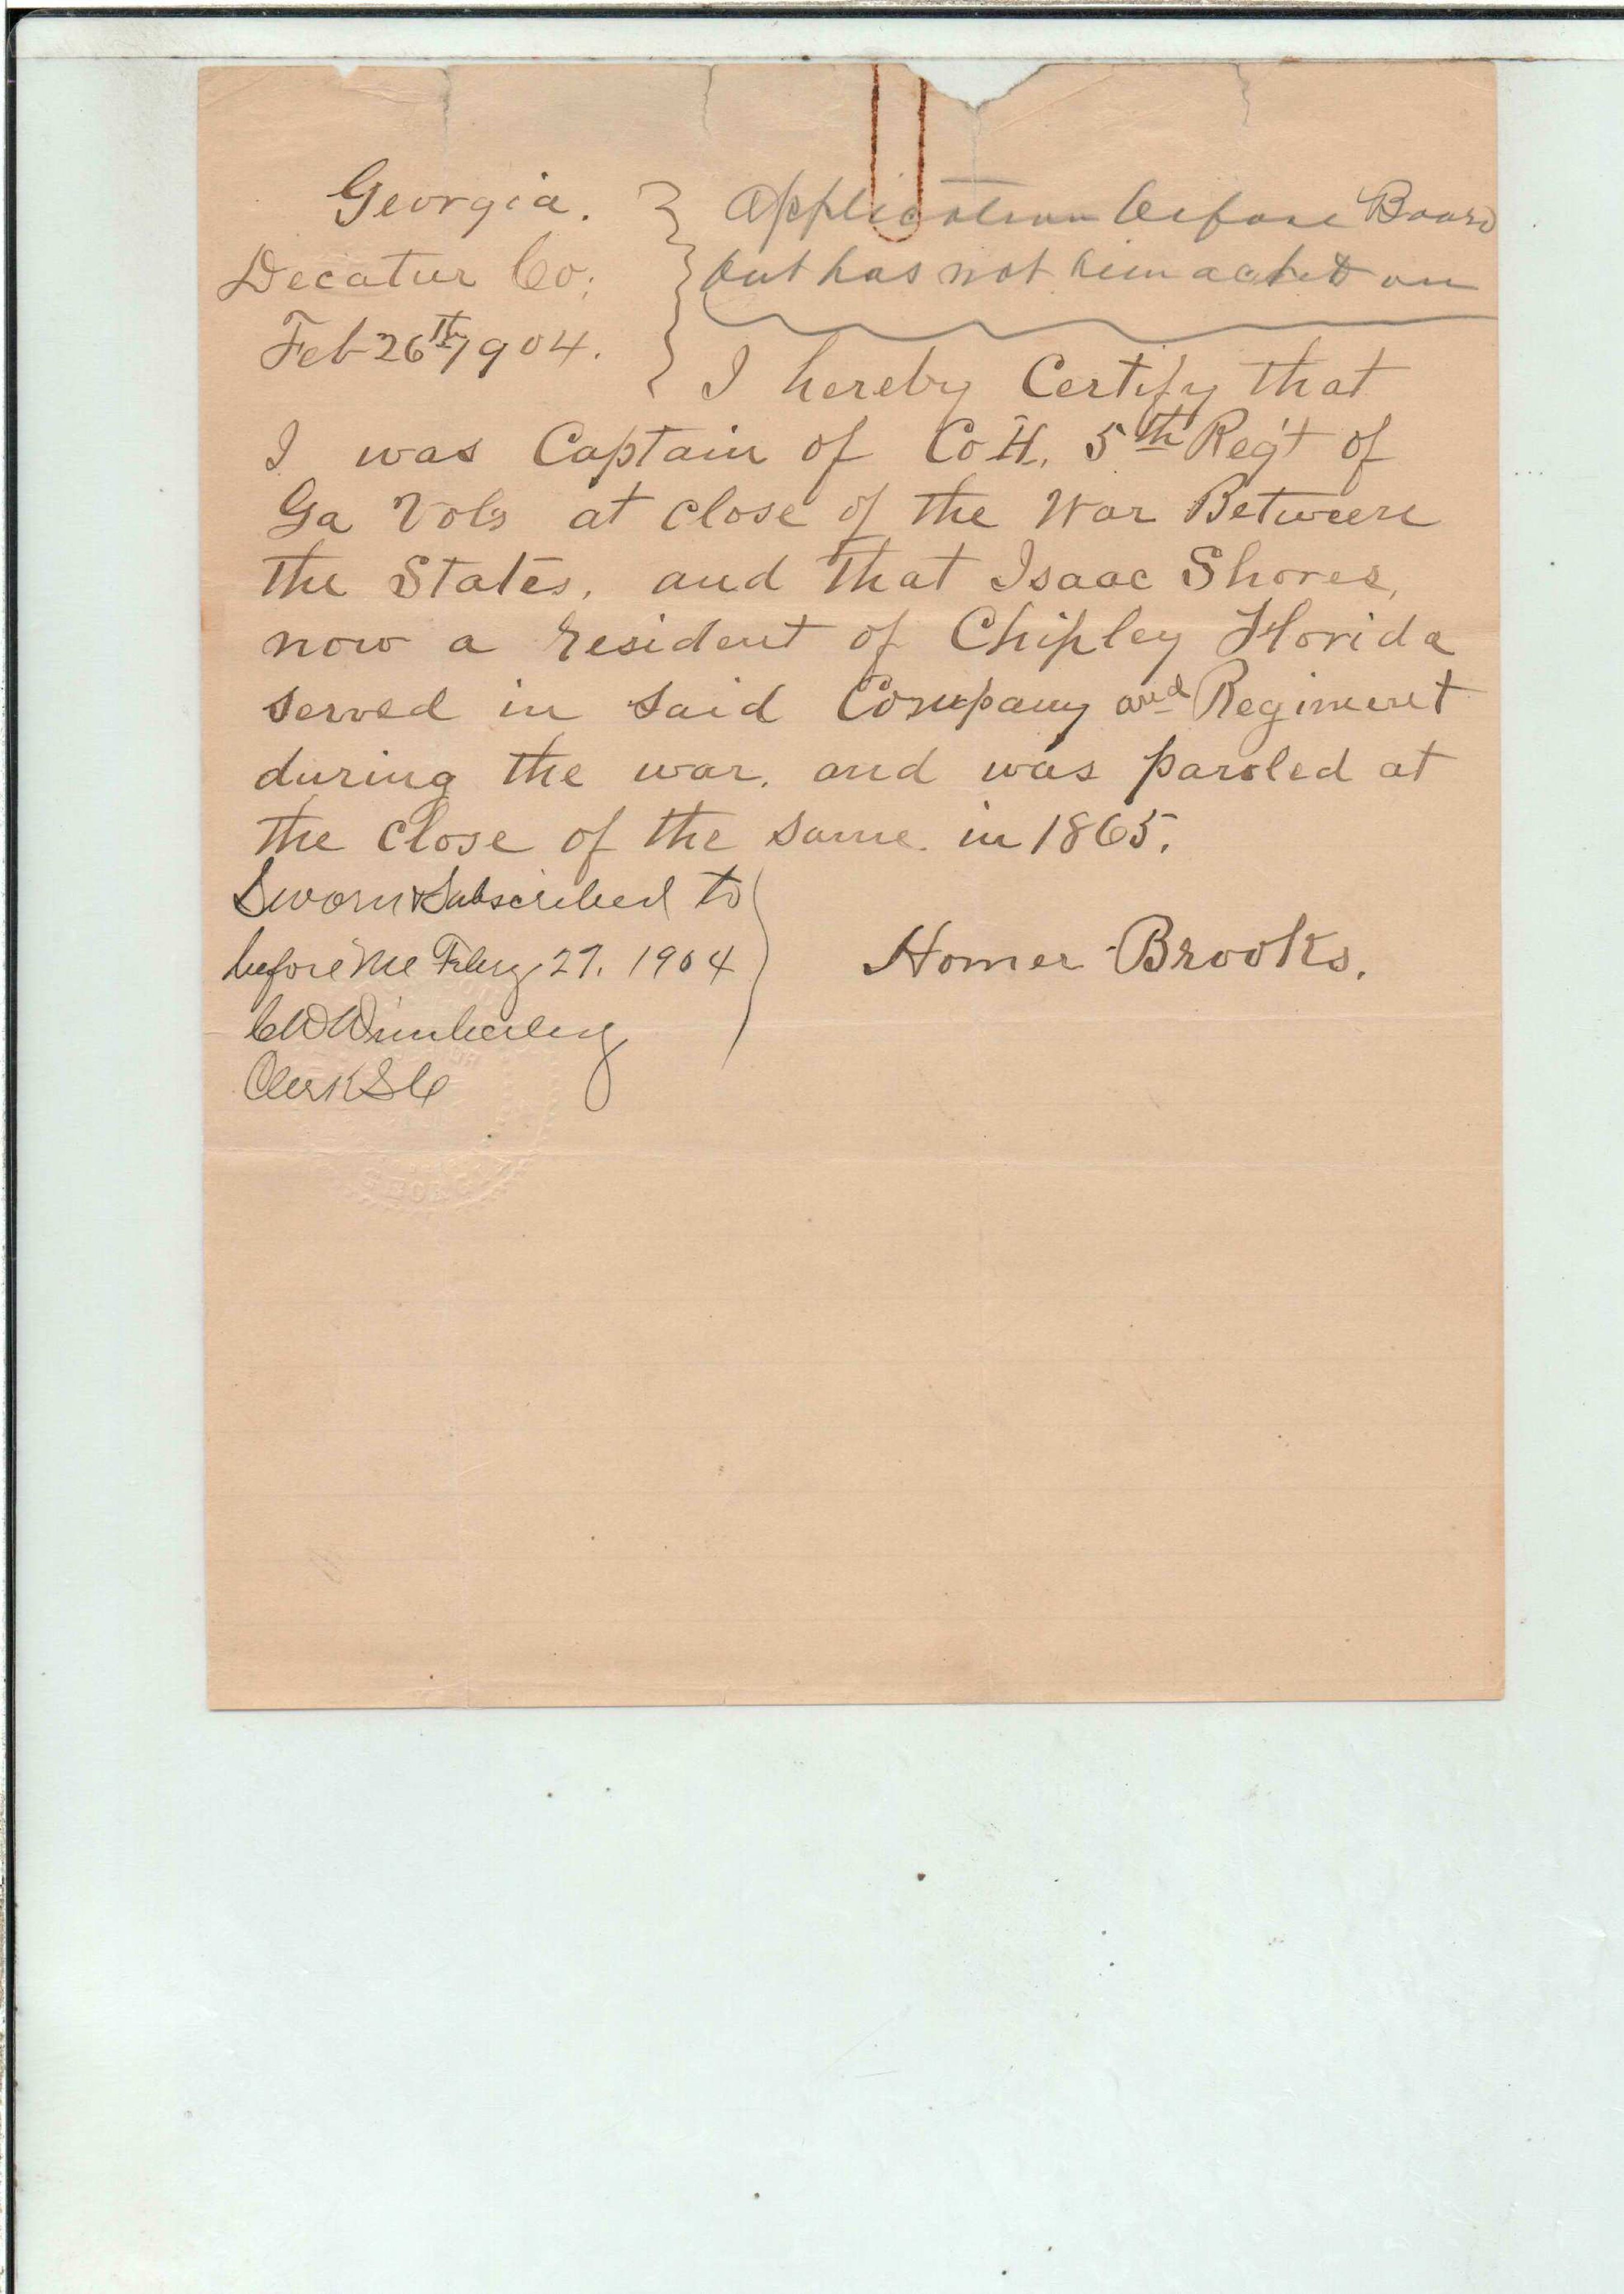 Georgia.
Decatur Co;
Feb 26th, 1904.
Application before Board
but has not bin acted on
I hereby Certify that
I was Captain of Co H. 5th Reg't of
Ga Vols at close of the War Between
the States, and that Isaac Shores,
now a resident of Chipley Florida
served in said Company and Regiment
during the war, and was paroled at
the close of the same. in 1865.
Sworn & Subscribed to
before me Feby 27. 1904
Homer Brooks.
C W Wimberley
Clerk S C